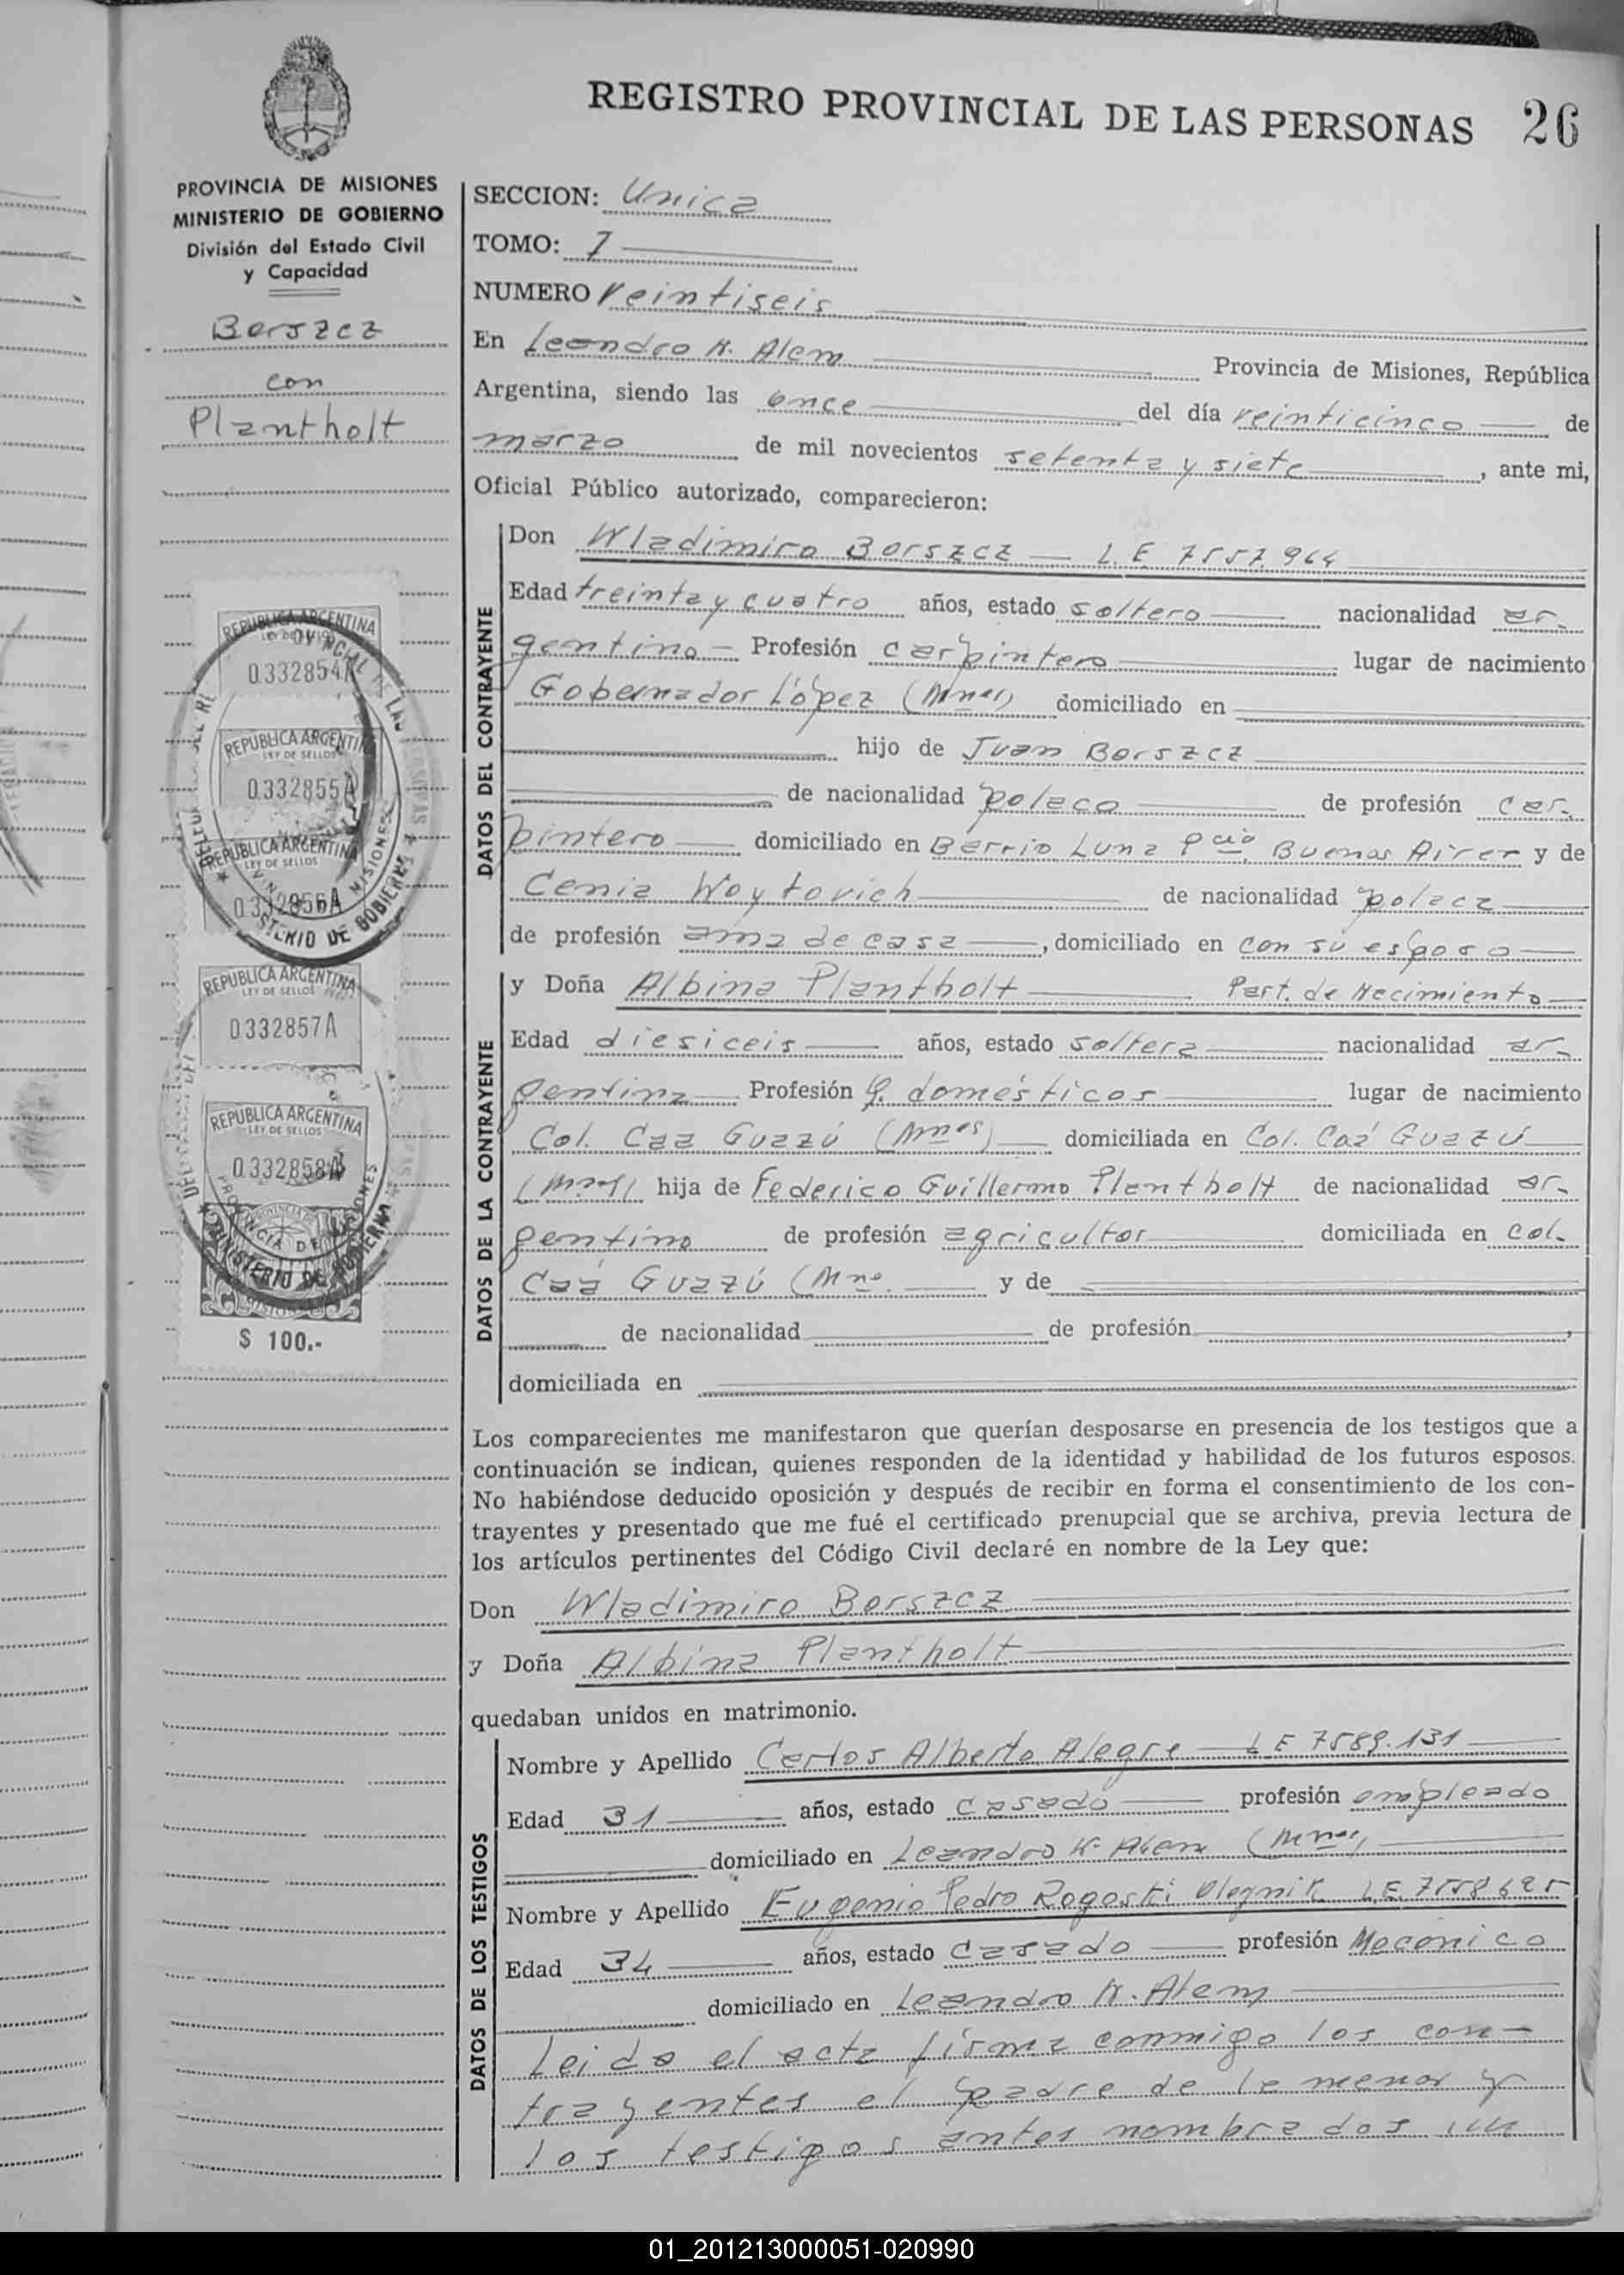 REGISTRO PROVINCIAL DE LAS PERSONAS 26
PROVINCIA DE MISIONES
MINISTERIO DE GOBIERNO
División del Estado Civil
y Capacidad
Borszcz
con
Plantholt
REPUBLICA ARGENTINA
0332854A
REPUBLICA ARGENTINA
LEY DE SELLOS
0332855A
REPUBLICA ARGENTINA
LEY DE SELLOS
0332856A
REPUBLICA ARGENTINA
LEY DE SELLOS
0332857A
REPUBLICA ARGENTINA
LEY DE SELLOS
0332858A
$ 100.-
SECCION: Unica
TOMO: I
NUMERO Veintiseis
En Leandro N. Alem Provincia de Misiones, República
Argentina, siendo las once del día veinticinco de
marzo de mil novecientos setenta y siete, ante mi,
Oficial Público autorizado, comparecieron:
DATOS DEL CONTRAYENTE
Don Wladimiro Borszcz — L.E. 7557.964
Edad treinta y cuatro años, estado soltero nacionalidad ar-
gentino — Profesión carpintero lugar de nacimiento
Gobernador López (Mnes) domiciliado en
hijo de Juan Borszcz
de nacionalidad polaca de profesión car-
pintero domiciliado en Barrio Luna Pcia Buenos Aires y de
Cenia Woytovich de nacionalidad polaca
de profesión ama de casa, domiciliado en con su esposo
DATOS DE LA CONTRAYENTE
y Doña Albina Plantholt Part. de Nacimiento
Edad diesiceis años, estado soltera nacionalidad ar-
gentina Profesión Q. domésticos lugar de nacimiento
Col. Caa Guazú (Mnes) domiciliada en Col. Caá Guazú
(Mnes) hija de Federico Guillermo Plantholt de nacionalidad ar-
gentino de profesión agricultor domiciliada en Col.
Caá Guazú (Mne. y de
de nacionalidad de profesión ,
domiciliada en
Los comparecientes me manifestaron que querían desposarse en presencia de los testigos que a
continuación se indican, quienes responden de la identidad y habilidad de los futuros esposos.
No habiéndose deducido oposición y después de recibir en forma el consentimiento de los con-
trayentes y presentado que me fué el certificado prenupcial que se archiva, previa lectura de
los artículos pertinentes del Código Civil declaré en nombre de la Ley que:
Don Wladimiro Borszcz
y Doña Albina Plantholt
quedaban unidos en matrimonio.
DATOS DE LOS TESTIGOS
Nombre y Apellido Carlos Alberto Alegre — LE 7589.131
Edad 31 años, estado casado profesión empleado
domiciliado en Leandro N. Alem (Mnes)
Nombre y Apellido Eugenio Pedro Rogoski Olegnik L.E. 7558695
Edad 34 años, estado casado profesión Mecánico
domiciliado en Leandro N. Alem
Leida el acta firma conmigo los con-
trayentes el padre de la menor y
los testigos antes nombrados
01_201213000051-020990